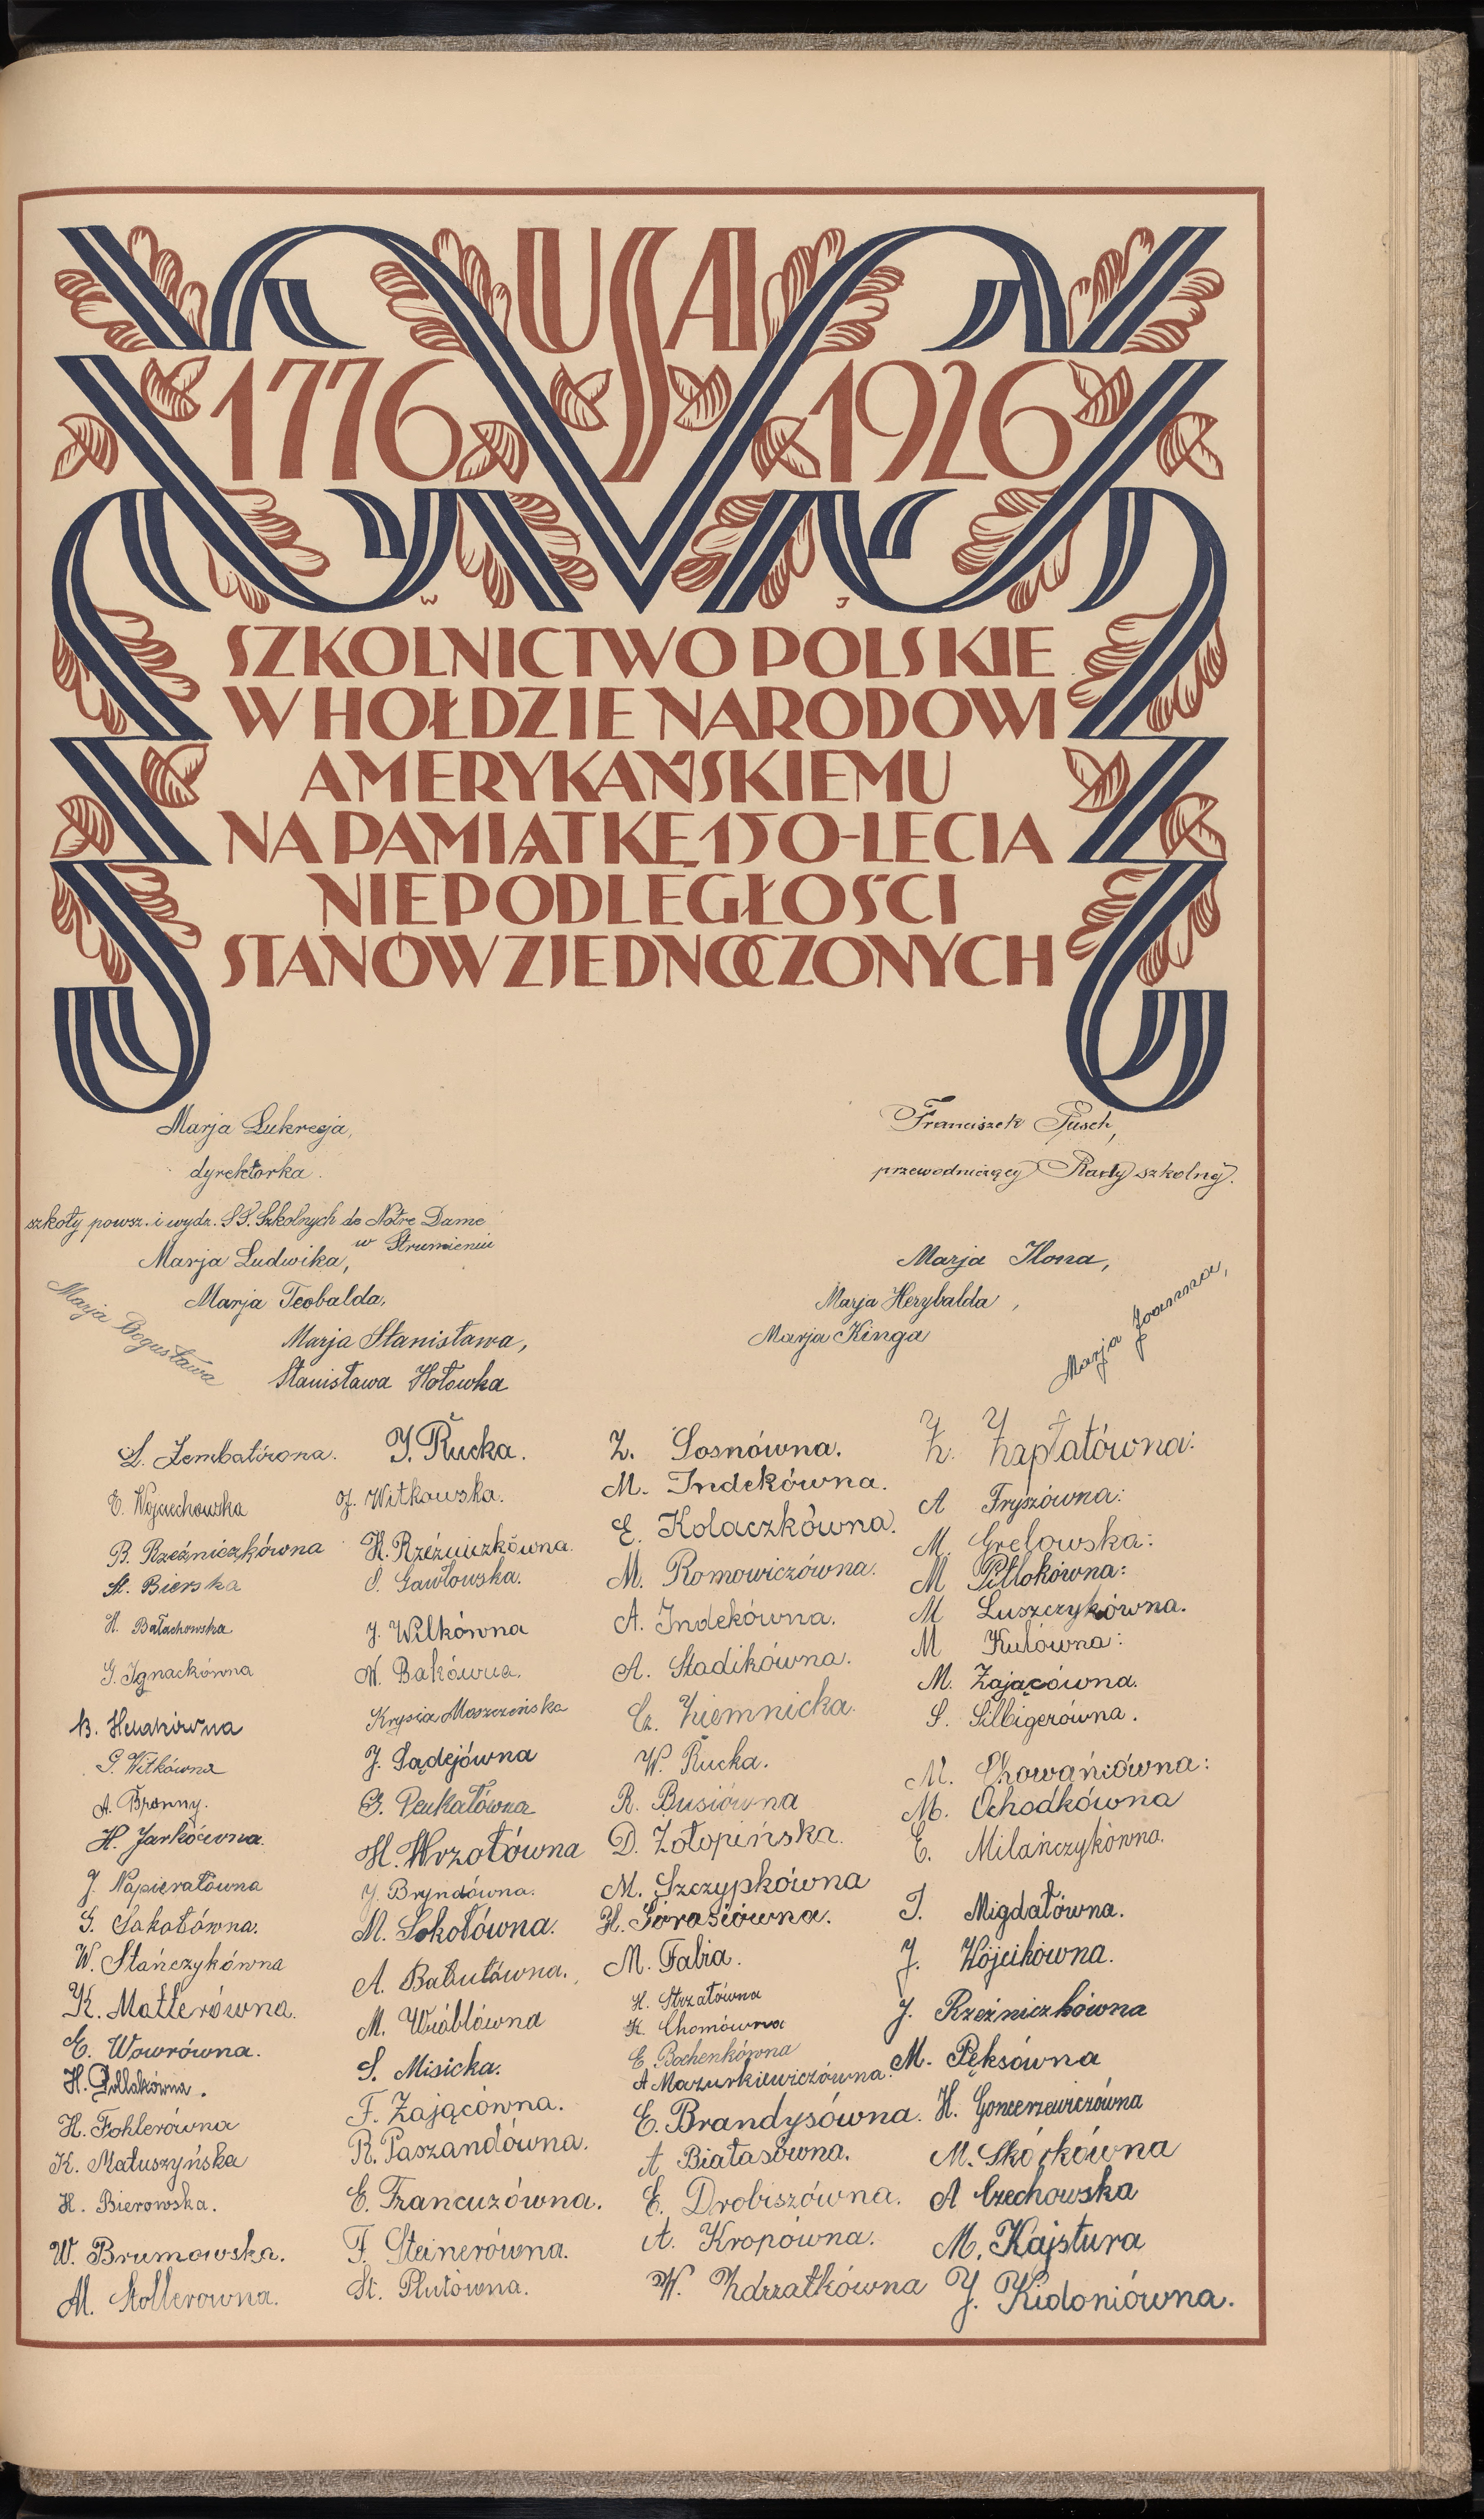 USA
1776 1926
W J
SZKOLNICTWO POLSKIE
W HOŁDZIE NARODOWI
AMERYKAŃSKIEMU
NA PAMIĄTKĘ 150-LECIA
NIEPODLEGŁOŚCI
STANÓW ZJEDNOCZONYCH
Marja Lukrecja,
dyrektorka.
szkoły powsz. i wydz. SS. Szkolnych de Notre Dame
w Strumieniu
Franciszek Pusch,
przewodniczący Rady szkolnej.
Marja Ludwika,
Marja Teobalda,
Marja Bogusława
Marja Stanisława,
Stanisława Hołowka
Marja Ilona,
Marja Herybalda,
Marja Kinga
Marja Joanna,
L. Zembatówna.
E. Wojciechowska
B. Rzeźniczkówna
St. Bierska
H. Bałachowska
G. Ignackówna
B.
G. Witkówna
A. Bronny.
H. Jarkówna.
J. Napierałówna
G. Sakołówna.
W. Stańczykówna
K. Matterówna.
E. Wowrówna.
H. Pollakówna.
H. Foklerówna
K. Matuszyńska
H. Bierowska.
W. Brumowska.
M. Stollerowna.
J. Rucka.
J. Witkowska.
H. Rzeźniczkówna.
S. Gawłowska.
J. Wilkówna
W. Bakówna.
Krysia Moszczeńska
J. Sądejówna
G. Penkałówna
H. Wrzołówna
J. Bryndówna.
M. Sokołówna.
A. Babulówna.
M. Wróblówna
S. Misicka.
F. Zającówna.
R. Paszandówna.
E. Francuzówna.
F. Steinerówna.
St. Plutówna.
Z. Sosnówna.
M. Indekówna.
E. Kolaczkówna.
M. Romowiczówna.
A. Indekówna.
A. Stadikówna.
Cz. Ziemnicka.
W. Rucka.
R. Busiówna
D. Zołopińska.
M. Szczypkówna
H. Górasiówna.
M. Fabia.
H. Strzałówna
K. Chomówna
E. Bochenkówna
A Mazurkiewiczówna.
E. Brandysówna.
A Białasówna.
E. Drobiszówna.
A. Kropówna.
W. Zdrzałkówna
Z. Zapłatówna:
A Fryszówna:
M. Grelowska:
M Pitlokówna:
M Luszczykówna.
M Kulówna:
M. Zającówna.
S. Silbigerówna.
M. Chowańiówna:
M. Ochodkówna
E. Milańczykówna.
I. Migdałówna.
J. Wójcikówna.
J. Rzeźniczkówna
M. Pęksówna
H. Goncerzewiczówna
M. Skórkówna
A Czechowska
M. Kajstura
J. Kidoniówna.